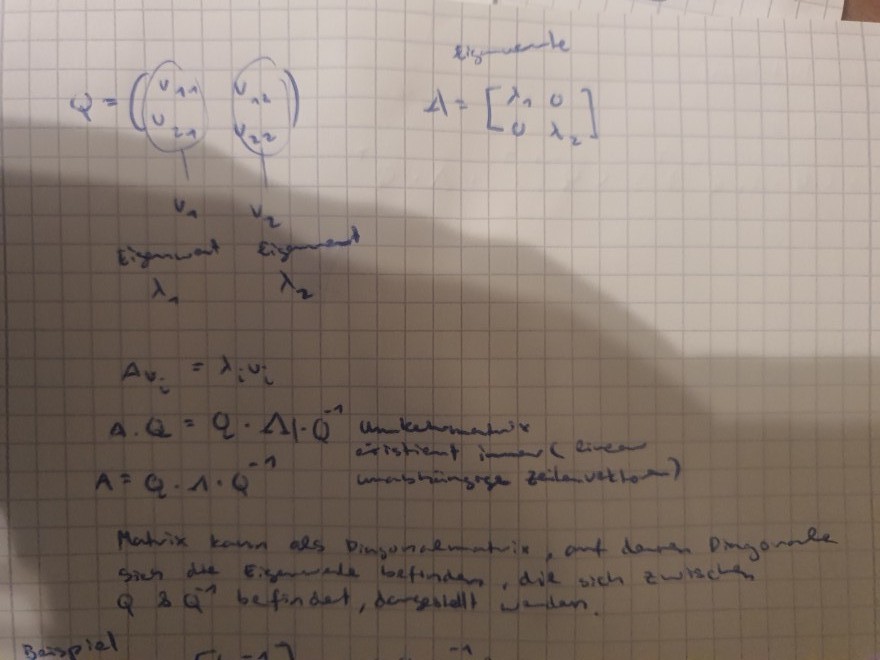 Eigenwerte
Q = ( v₁₁ v₁₂ ) Λ = [ λ₁ 0 ]
( v₂₁ v₂₂ ) [ 0 λ₂ ]
v₁ v₂
Eigenwert Eigenwert
λ₁ λ₂
Avᵢ = λᵢvᵢ
A · Q = Q · Λ | · Q⁻¹ Umkehrmatrix
existiert immer (linear
A = Q · Λ · Q⁻¹ unabhängige Zeilenvektoren)
Matrix kann als Diagonalmatrix, auf deren Diagonale
sich die Eigenwerte befinden, die sich zwischen
Q & Q⁻¹ befindet, dargestellt werden.
Beispiel